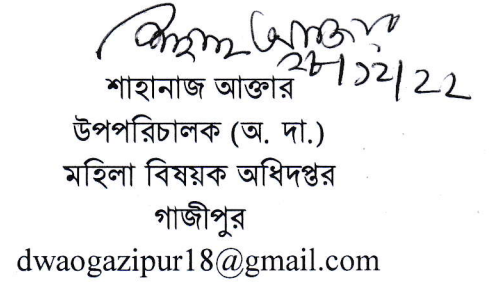 শাহানাজ আক্তার
২৮/১২/২২
শাহানাজ আক্তার
উপপরিচালক (অ. দা.)
মহিলা বিষয়ক অধিদপ্তর
গাজীপুর
dwaogazipur18@gmail.com